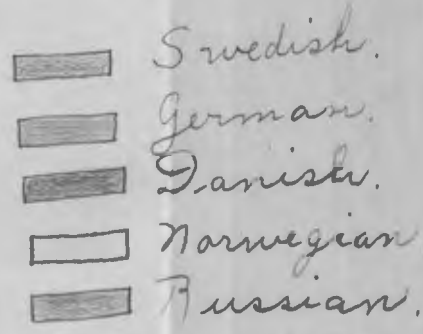 Swedish.
German.
Danish.
Norwegian
Russian.